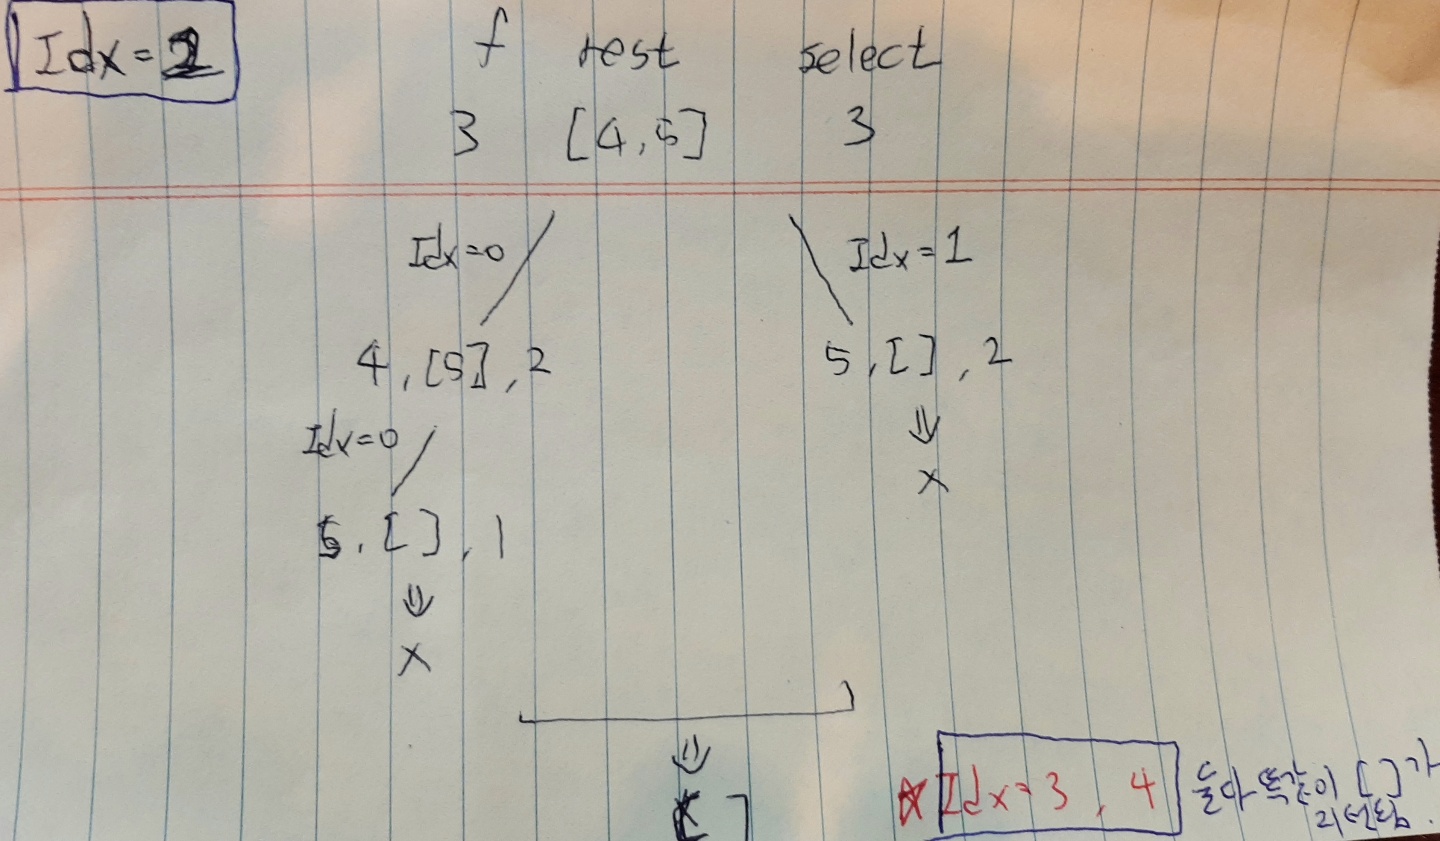 Idx = 2
f rest select
3 [4,5] 3
Idx=0 Idx=1
4,[5],2 5,[],2
Idx=0 ⇓
x
5,[],1
⇓
x
⇓
[ ]
☆ Idx=3, 4 둘다 똑같이 []가
리턴됨.